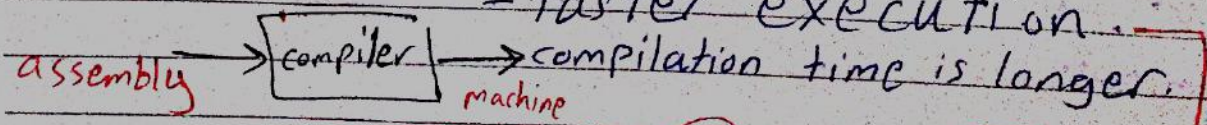 - faster execution.
assembly compiler compilation time is longer.
machine